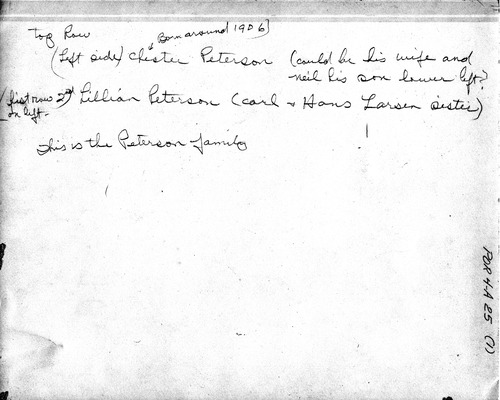 Top Row
Born around 1906]
(Left side) Chester Peterson (could be his wife and
neil his son lower left?
(first row 2nd Lillian Peterson (Carl + Hans Larsen sister)
on left.
This is the Peterson family
POR 4A 25 (1)